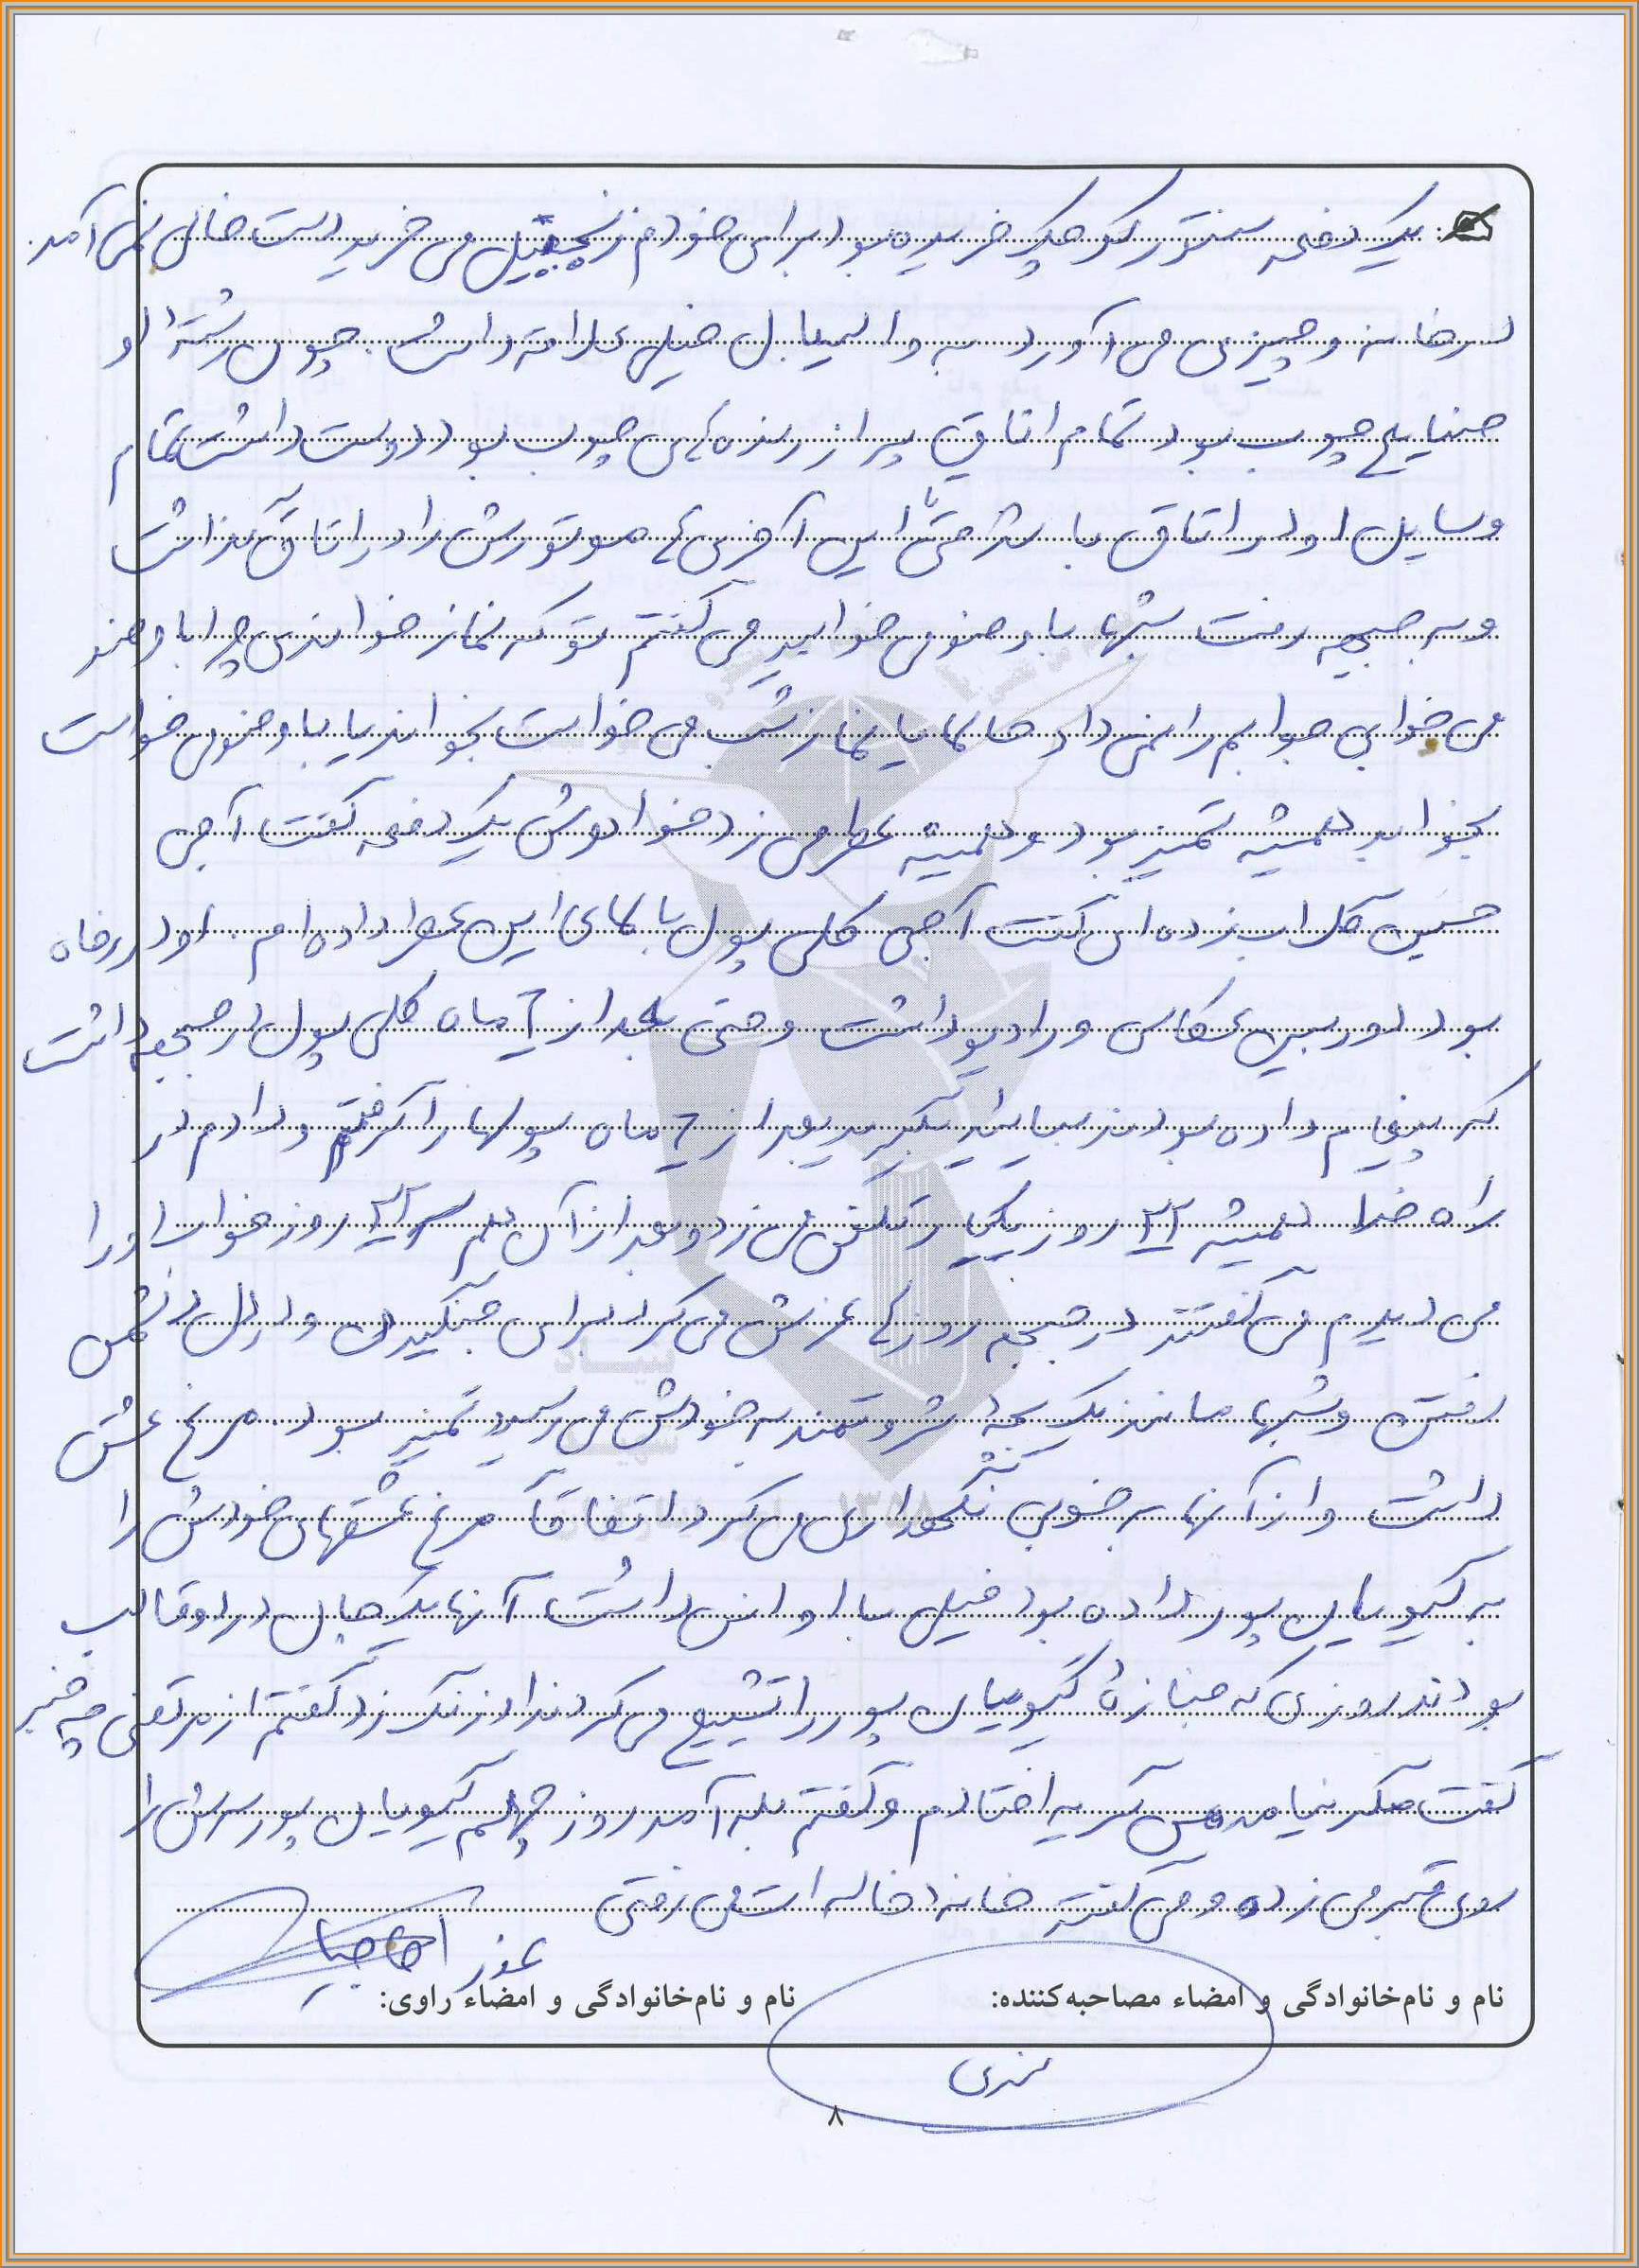 یک دفعه سنتور کوچک خریده بود برای خودم زنجبیل می خرید دست خالی نمی آمد.
در خانه و چیزی می آورد به والیبال خیلی علاقه داشت. چون رشتهٔ او
صنایع چوب بود تمام اتاق پر از رنده های چوب بود دوست داشت تمام
وسایل او در اتاق باشد حتی این آخری ها موتورش را در اتاق گذاشت
و به جبهه رفت شبها با وضو می خوابید می گفتم تو که نماز خواندی چرا با وضو
می خوابی جوابم را نمی داد حالا یا نماز شب می خواست بخواند یا با وضو می خواست
بخوابد همیشه تمیز بود و همیشه عطر می زد خوشبو یک دفعه گفت آجی
حسین گلاب زده ای گفت آجی کلی پول بابای این عطر داده ام. او در رفاه
بود دوربین عکاسی و رادیو داشت و حتی بعد از ۶ ماه کلی پول در جبهه داشت
که پیغام داده بودند بیایید بگیرید بعد از ۶ ماه پولها را گرفتم و دادم در
راه خدا همیشه ۲۲ روز یکبار تلفن می زد و بعد از آن هم سر ۲۲ روز خواب او را
می دیدم می گفتند در جبهه روزها غرش می کرد برای جنگیدن و در دل دشمن
رفتن و شبها مانند یک بچهٔ ثروتمند به خودش می رسید تمیز بود. مرغ عشق
داشت و از آنها به خوبی نگهداری می کرد اتفاقاً مرغ عشقهای خودش را
به کیویان پور داده بود خیلی با او انس داشت آنها یک جان در دو قالب
بودند روزی که جنازهٔ کیویان پور را تشییع می کردند او زنگ زد گفتم از مرتضی چه خبر
گفت مگر نیامده پس گریه افتادم و گفتم بله آمد روز چهلم کیویان پور سرش را
روی قبر می زده و می گفته خانه خاله ات می رفتی
عذرا حاجیان
نام و نام‌خانوادگی و امضاء مصاحبه‌کننده: نام و نام‌خانوادگی و امضاء راوی:
۸